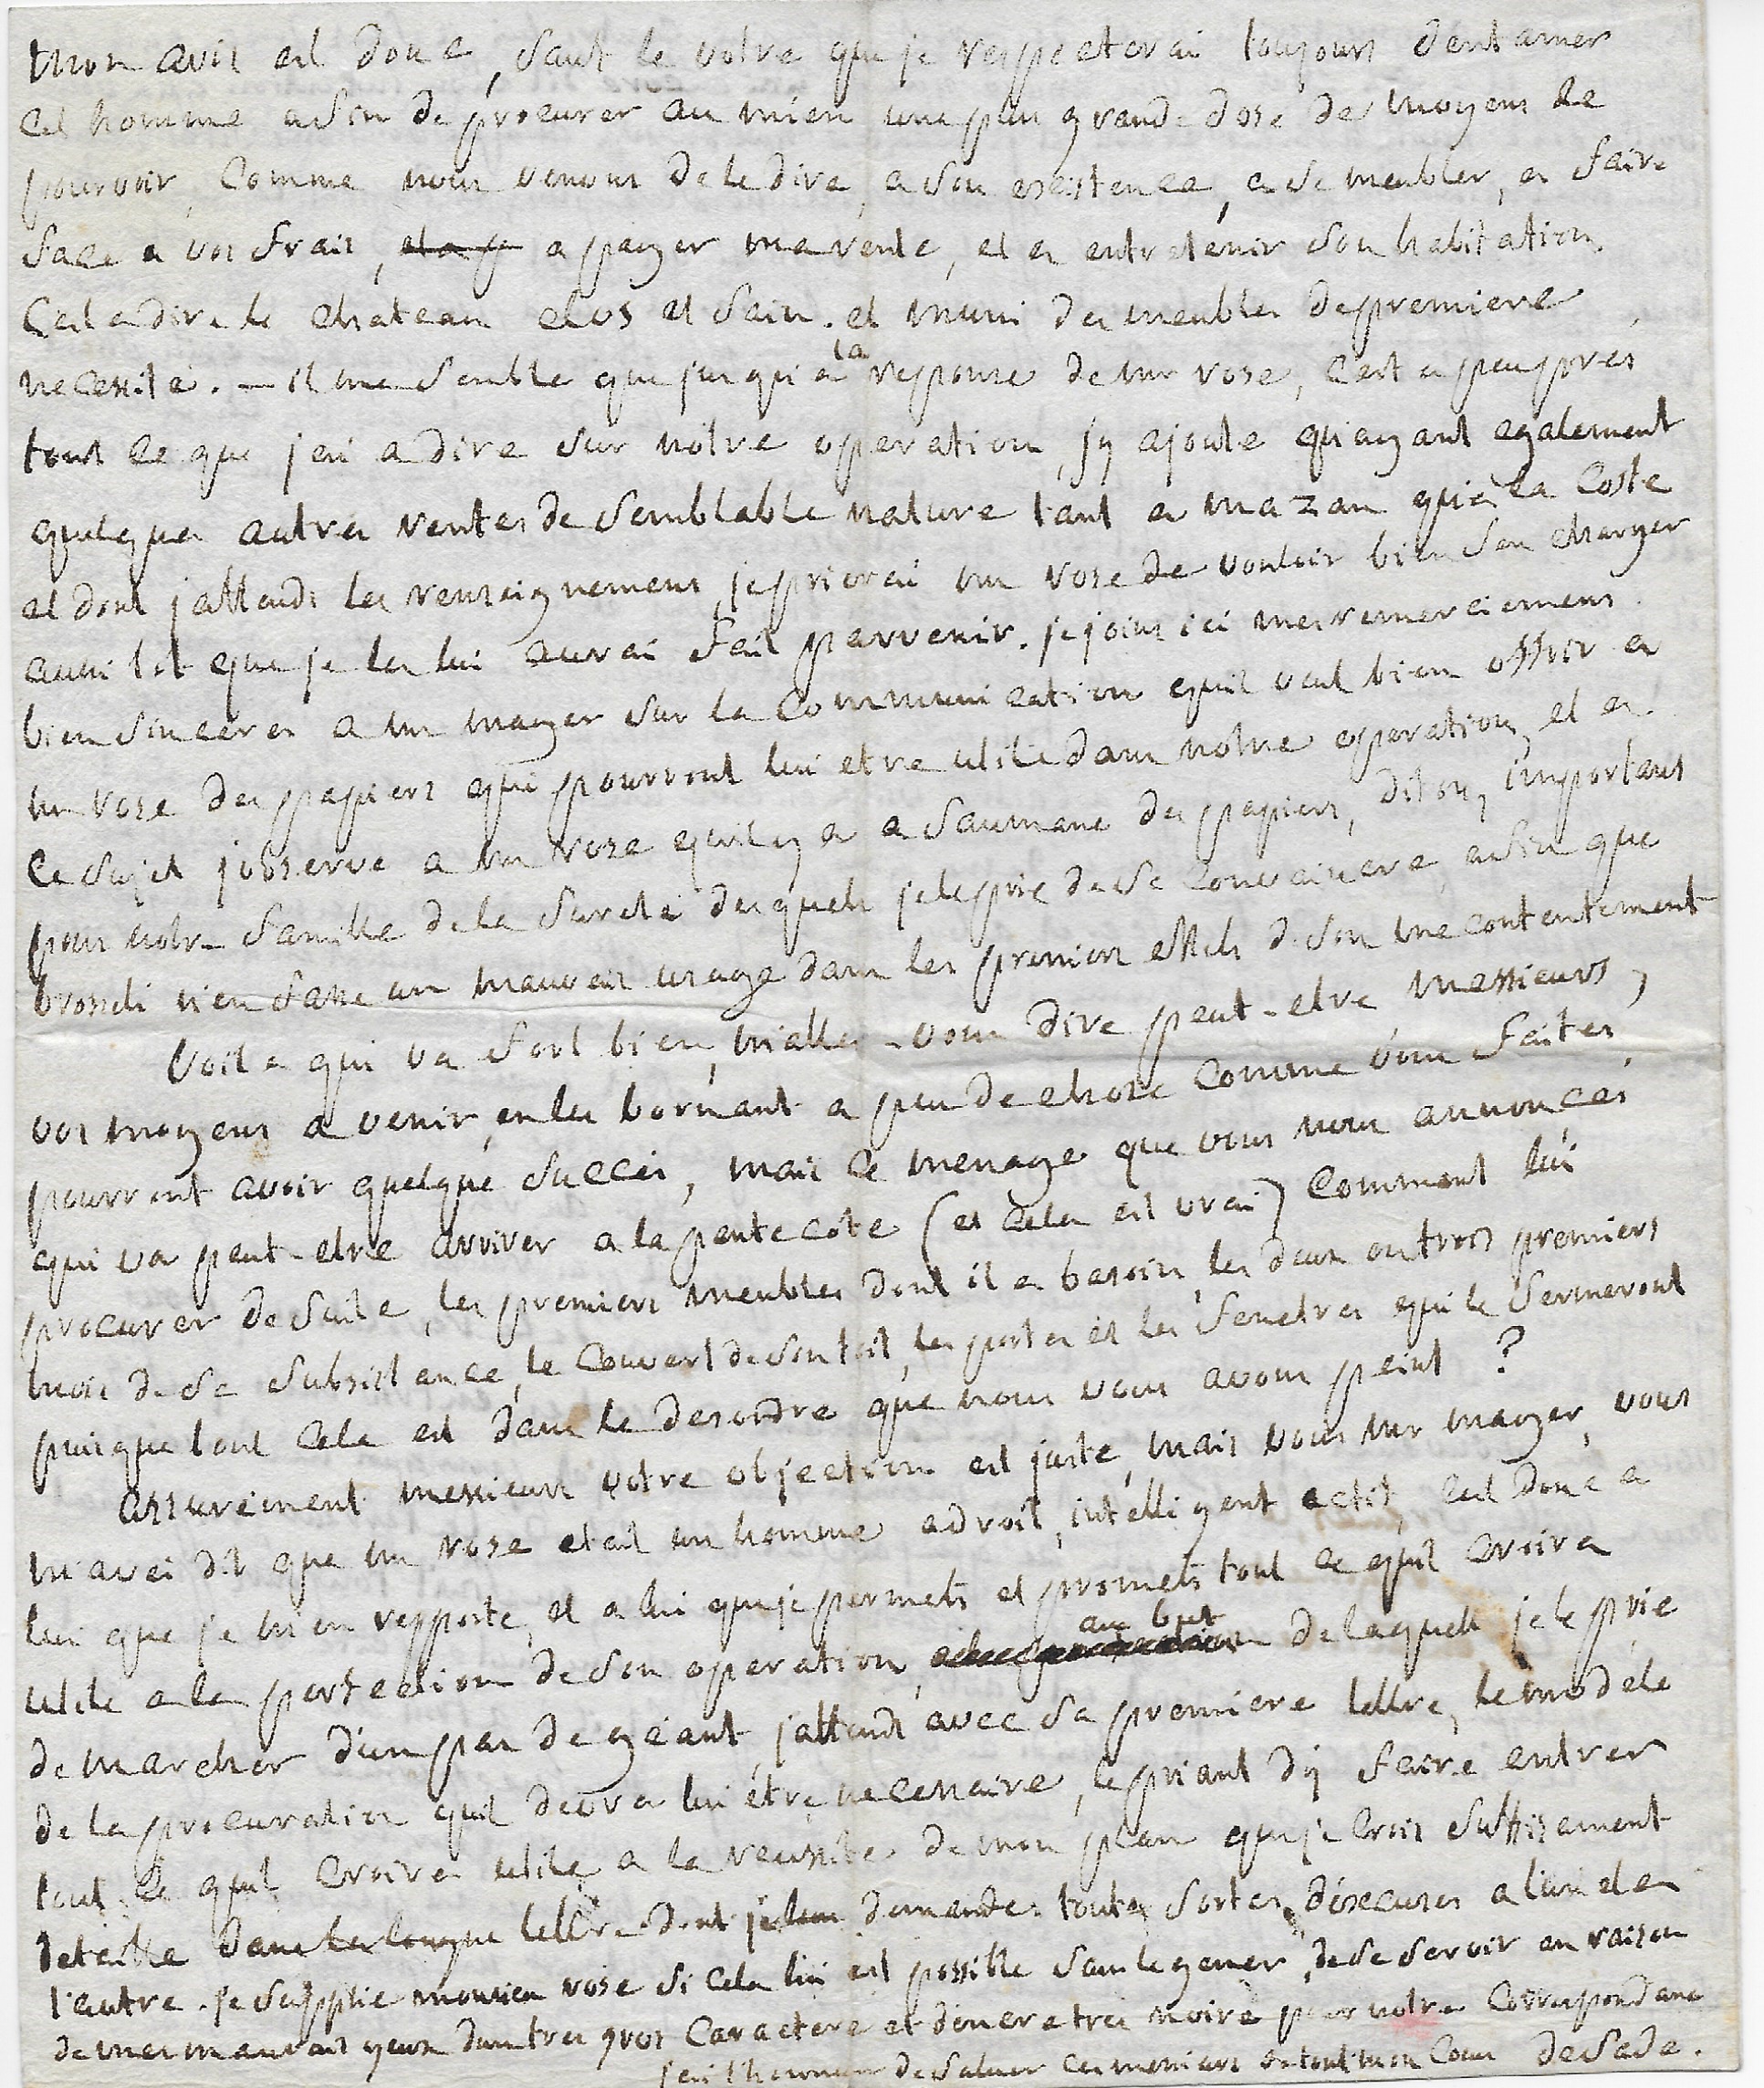 mon avis est donc, sauf le votre que je respecterai toujours d'entamer
cet homme afin de procurer au mien une peu grande dose de moyens de
pourvoir, comme nous venons de le dire, a son existence, a se meubler, a faire
face a vos frais, a payer ma rente, et a entretenir son habitation,
Cest a dire le chateau clos et sain. et muni des meubles de premiere
necessité. — il me semble que jusqu'a la response de mr rose, c'est a peu pres
tout ce que j'ai a dire sur nôtre operation, j'y ajoute qu'ayant egalement
quelques autres rentes de semblable nature tant a mazan qu'a la Coste
et dont j'attends les renseignemens, je prierai mr rose de vouloir bien s'en charger
aussi tot que je les lui aurai fait parvenir. je joins ici mes remerciemens
bien sinceres a mr mayer sur la communication quil veut bien offrir a
mr rose des papiers qui pourront lui etre utile dans notre operation, et a
ce sujet j'observe a mr rose quil y a a Saumane des papiers, dit on, importans
pour notre famille de la sureté desquels je le prie de se convaincre, afin que
brosseli n'en fasse un mauvais usage dans les premiers effets de son mecontentement
Voila qui va fort bien, m'alles-vous dire peut-etre messieurs,
vos moyens a venir, en les bornant a peu de chose comme vous faites,
pourront avoir quelque succès, mais le menage que vous nous annoncés
qui va peut-etre arriver a la pentecôte (et cela est vrai) comment lui
procurer de suite, les premiers meubles dont il a besoin, les deux ou trois premiers
mois de sa subsistance, le couvert de son toit, les portes et les fenetres qui le fermeront
puisque tout cela est dans le desordre que nous vous avons peint ?
assurément messieurs votre objection est juste, mais vous mr mayer, vous
m'avés dit que mr rose etait un homme adroit, intelligent actif, cest donc a
lui que je m'en rapporte, et a lui que je permets et promets tout ce quil croira
utile a la perfection de son operation, au but de laquelle je le prie
de marcher d'un pas de géant, j'attends avec sa premiere lettre, le modéle
de la procuration quil devra lui être necessaire, le priant d'y faire entrer
tout ce quil croira utile a la reussite de mon plan que je crois suffisament
detaillé dans la longue lettre dont je demande toutes sortes d'excuses a l'un et a
l'autre. je supplie monsieur rose si cela lui est possible sans le gener, de se servir en raison
de mes mauvais yeux d'un tres gros caractere et d'encre tres noire pour notre correspondance
j'ai l'honneur de saluer ces messieurs de tout mon coeur desade.